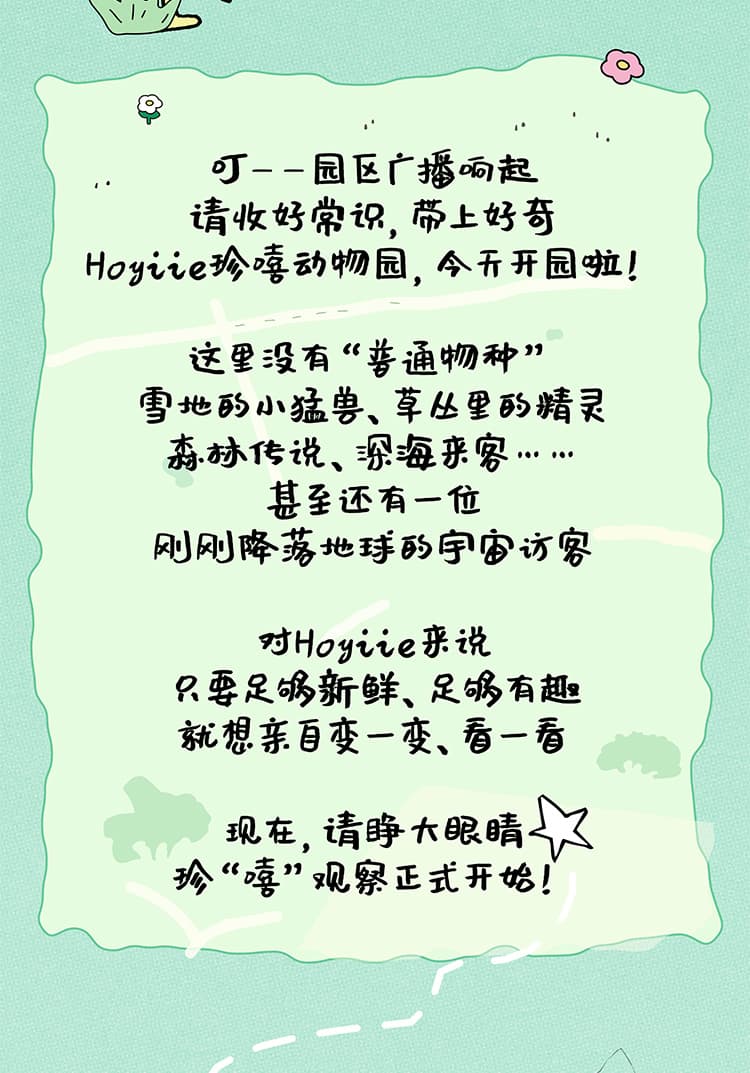 叮——园区广播响起
请收好常识，带上好奇
Hoyiie珍嘻动物园，今天开园啦！
这里没有“普通物种”
雪地的小猛兽、草丛里的精灵
森林传说、深海来客……
甚至还有一位
刚刚降落地球的宇宙访客
对Hoyiie来说
只要足够新鲜、足够有趣
就想亲自变一变、看一看
现在，请睁大眼睛
珍“嘻”观察正式开始！